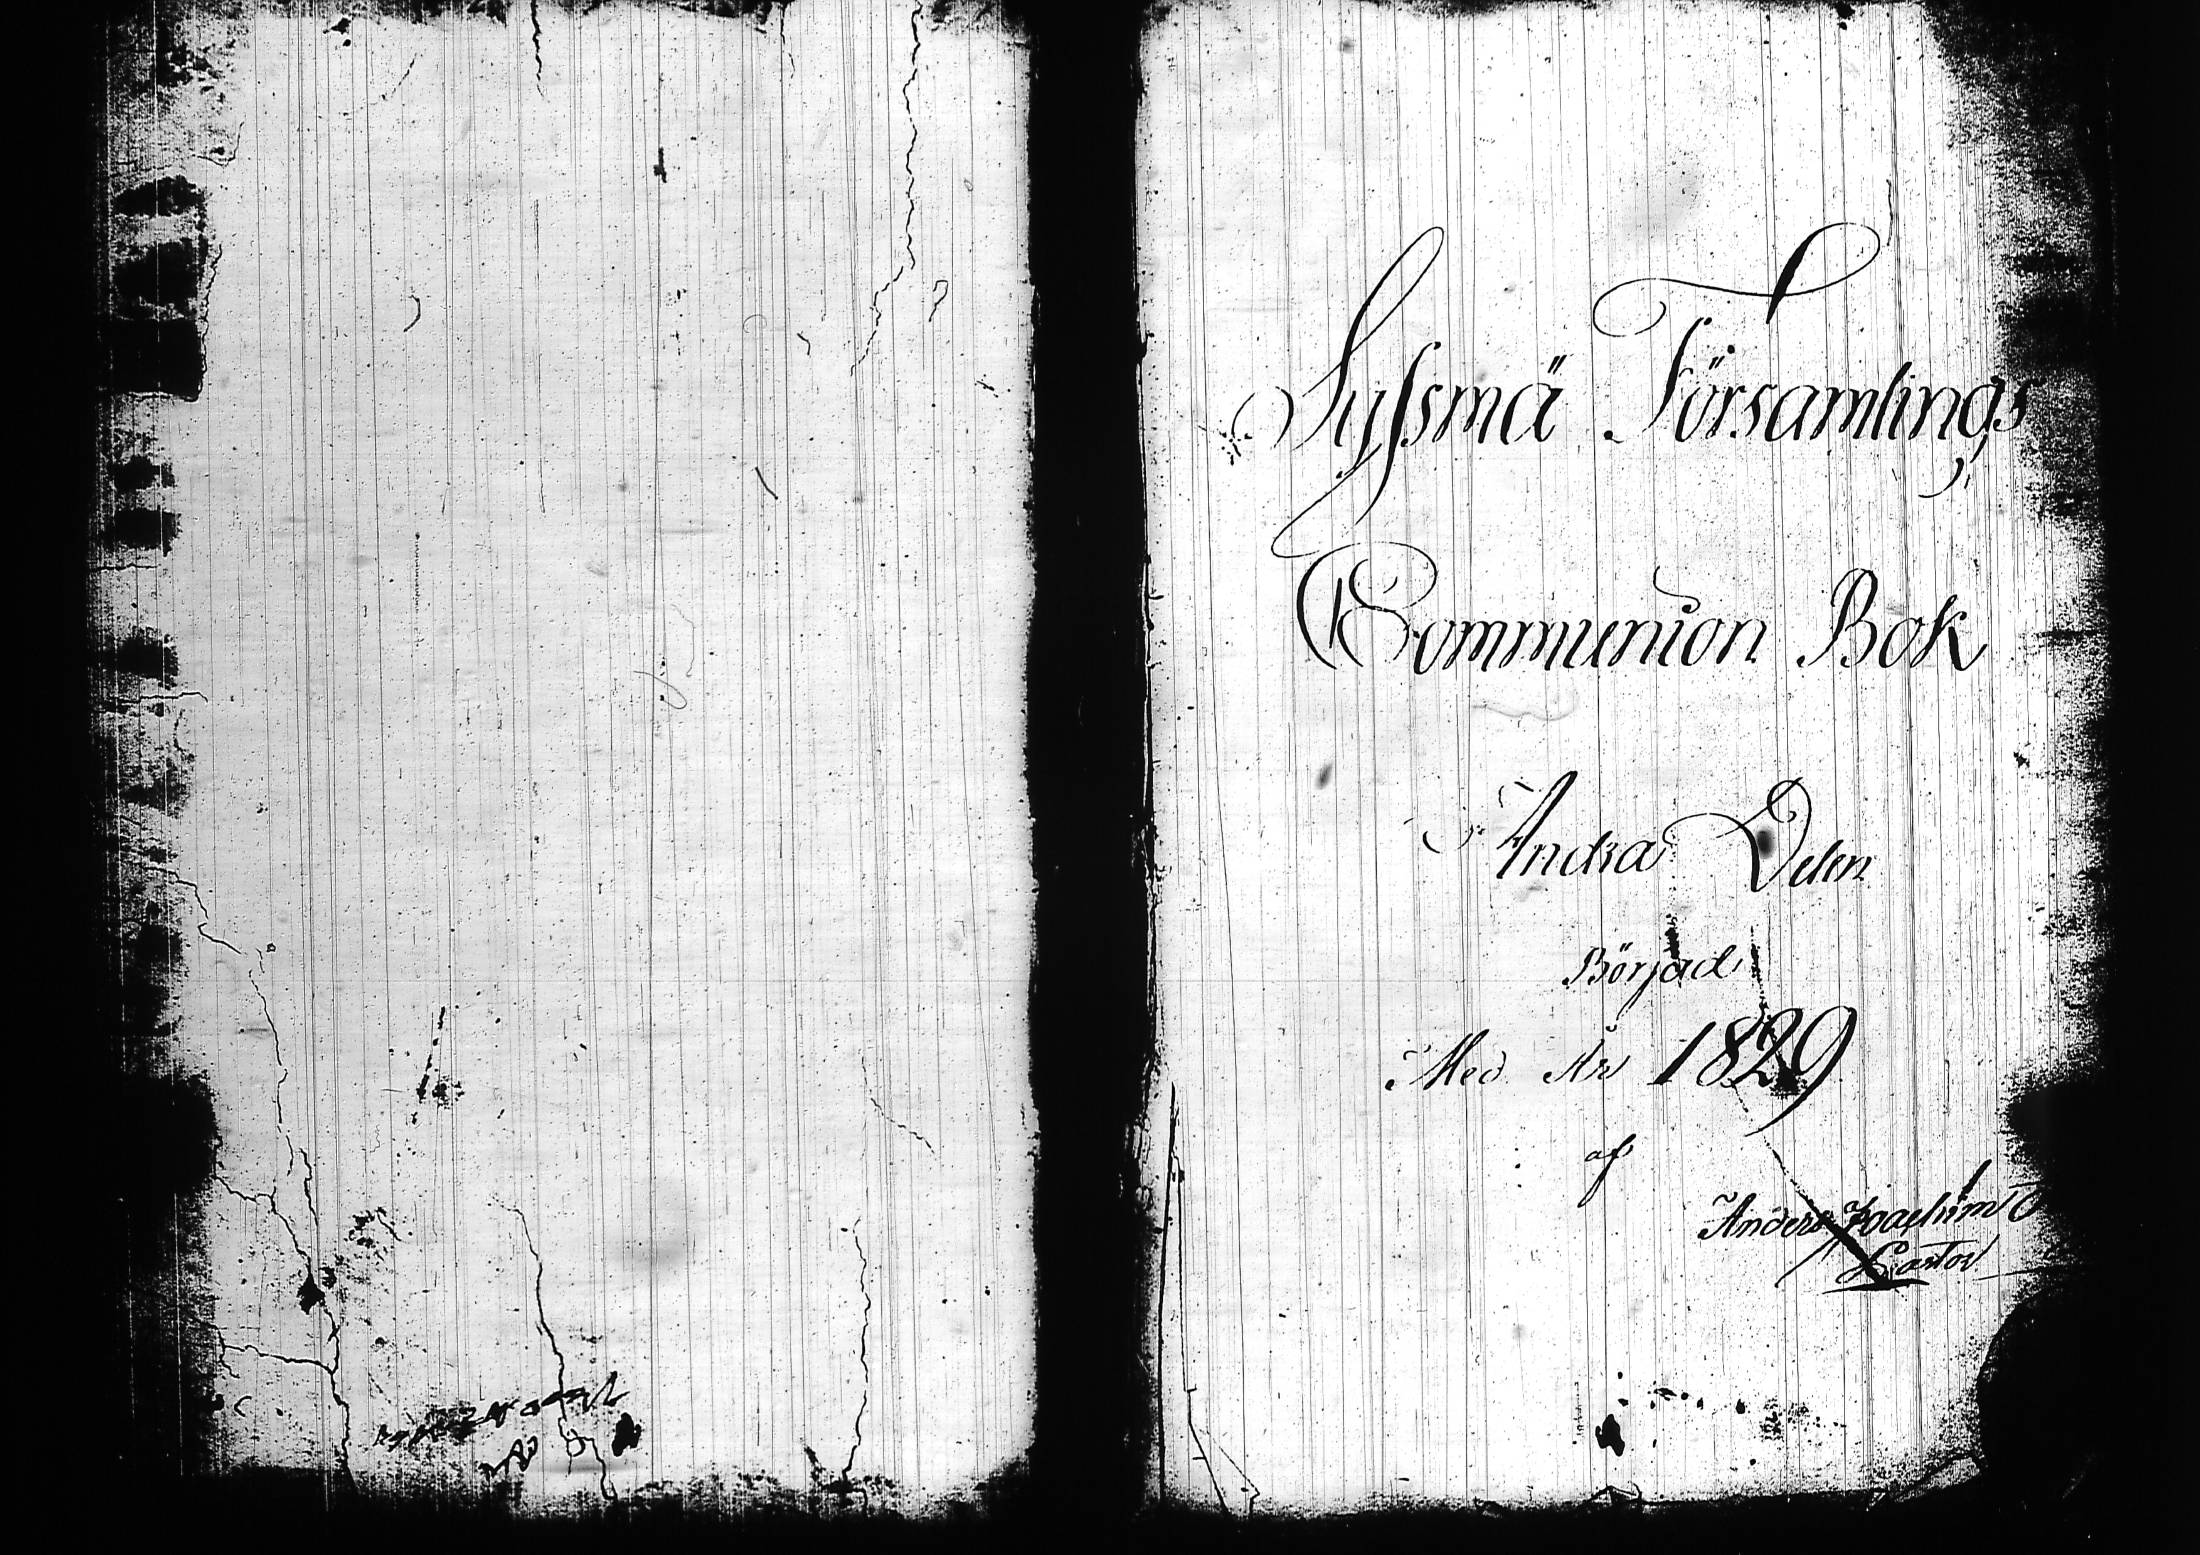 Syssmä Församlings
Communion Bok
Andra Delen
Börjad
Med År 1829
af
Anders Joachim
Pastor